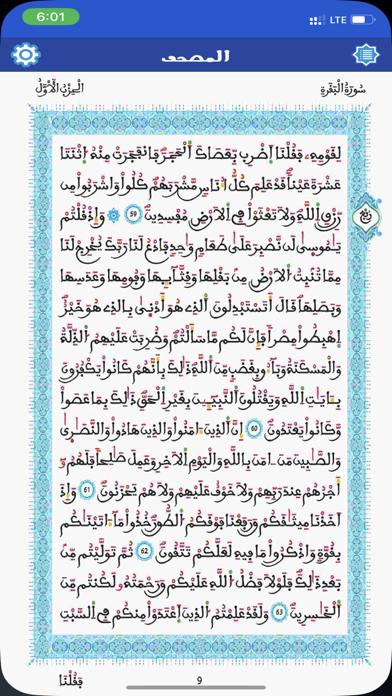 6:01
LTE
المصحف
سُورَةُ الْبَقَرَةِ
الْحِزْبُ الْأَوَّلُ
لِقَوْمِهِۦ فَقُلْنَا اَضْرِب بِّعَصَاكَ اَلْحَجَرَ فَانفَجَرَتْ مِنْهُ اُ۪ثْنَتَا
عَشْرَةَ عَيْناٗ قَدْ عَلِمَ كُلُّ أُنَاسٖ مَّشْرَبَهُمْ كُلُواْ وَاشْرَبُواْ مِن
رِّزْقِ اِ۬للَّهِ وَلَا تَعْثَوْاْ فِے اِ۬لْأَرْضِ مُفْسِدِينَ 59 وَإِذْ قُلْتُمْ
يَٰمُوس۪يٰ لَن نَّصْبِرَ عَلَىٰ طَعَامٖ وَٰحِدٖ فَادْعُ لَنَا رَبَّكَ يُخْرِجْ لَنَا
مِمَّا تُنۢبِتُ اُ۬لْأَرْضُ مِنۢ بَقْلِهَا وَقِثَّآئِهَا وَفُومِهَا وَعَدَسِهَا
وَبَصَلِهَا قَالَ أَتَسْتَبْدِلُونَ اَ۬لذِے هُوَ أَدْن۪يٰ بِالذِے هُوَ خَيْرٌ
اِ۪هْبِطُواْ مِصْراٗ فَإِنَّ لَكُم مَّا سَأَلْتُمْ وَضُرِبَتْ عَلَيْهِمُ اُ۬لذِّلَّةُ
وَالْمَسْكَنَةُ وَبَآءُو بِغَضَبٖ مِّنَ اَ۬للَّهِ ذَٰلِكَ بِأَنَّهُمْ كَانُواْ يَكْفُرُونَ
بِـَٔايَٰتِ اِ۬للَّهِ وَيَقْتُلُونَ اَ۬لنَّبِيٓـِٕينَ بِغَيْرِ اِ۬لْحَقِّ ذَٰلِكَ بِمَا عَصَواْ
وَّكَانُواْ يَعْتَدُونَ 60 إِنَّ اَ۬لذِينَ ءَامَنُواْ وَالذِينَ هَادُواْ وَالنَّصَٰر۪يٰ
وَالصَّٰبِينَ مَنَ اٰمَنَ بِاللَّهِ وَالْيَوْمِ اِ۬لَاخِرِ وَعَمِلَ صَٰلِحاٗ فَلَهُمُۥٓ
أَجْرُهُمْ عِندَ رَبِّهِمْ وَلَا خَوْفٌ عَلَيْهِمْ وَلَا هُمْ يَحْزَنُونَ 61 وَإِذَ
اَخَذْنَا مِيثَٰقَكُمْ وَرَفَعْنَا فَوْقَكُمُ اُ۬لطُّورَ خُذُواْ مَآ ءَاتَيْنَٰكُم
بِقُوَّةٖ وَاذْكُرُواْ مَا فِيهِ لَعَلَّكُمْ تَتَّقُونَ 62 ثُمَّ تَوَلَّيْتُم مِّنۢ
بَعْدِ ذَٰلِكَ فَلَوْلَا فَضْلُ اُ۬للَّهِ عَلَيْكُمْ وَرَحْمَتُهُۥ لَكُنتُم مِّنَ
اَ۬لْخَٰسِرِينَ 63 وَلَقَدْ عَلِمْتُمُ اُ۬لذِينَ اَ۪عْتَدَوْاْ مِنكُمْ فِے اِ۬لسَّبْتِ
فَقُلْنَا
9